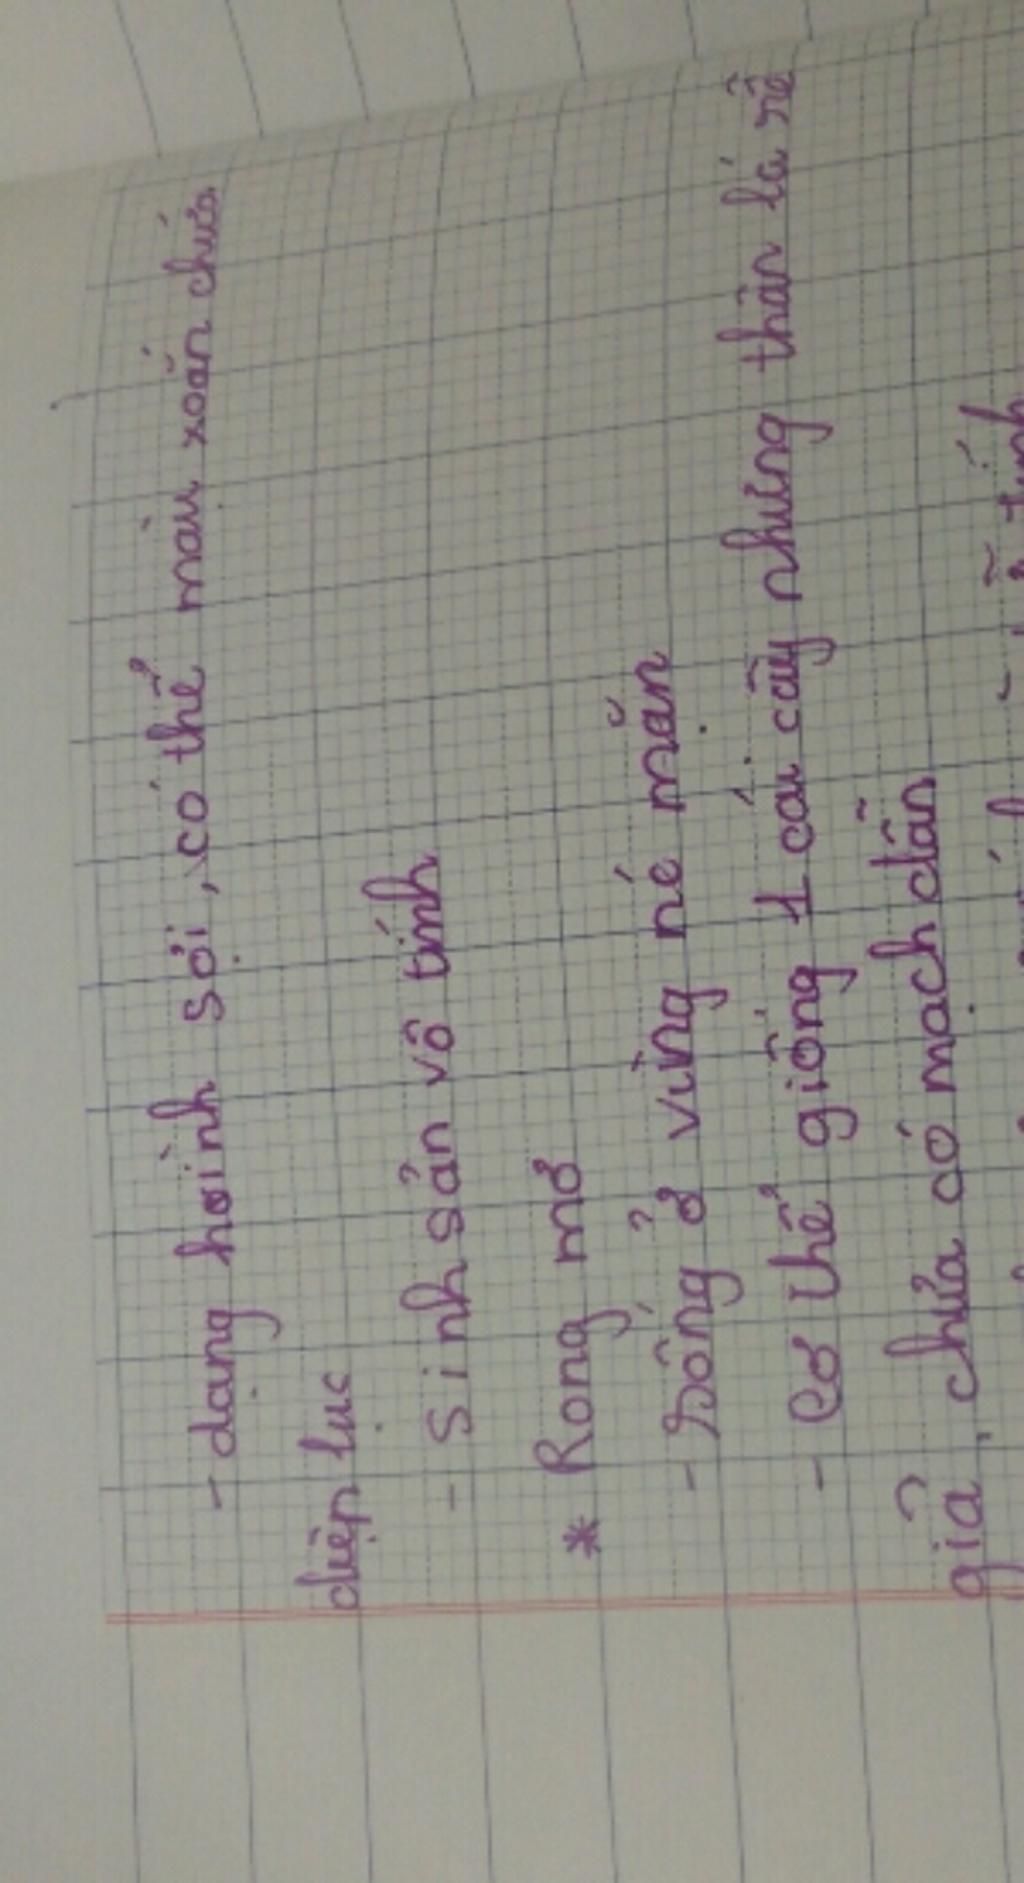 - dạng hình sợi, có thể màu xoắn chứa
diệp lục
- Sinh sản vô tính
* Rong mơ
- Sống ở vùng nc mặn
- Cơ thể giống 1 cái cây nhưng thân lá rễ
giả, chưa có mạch dẫn